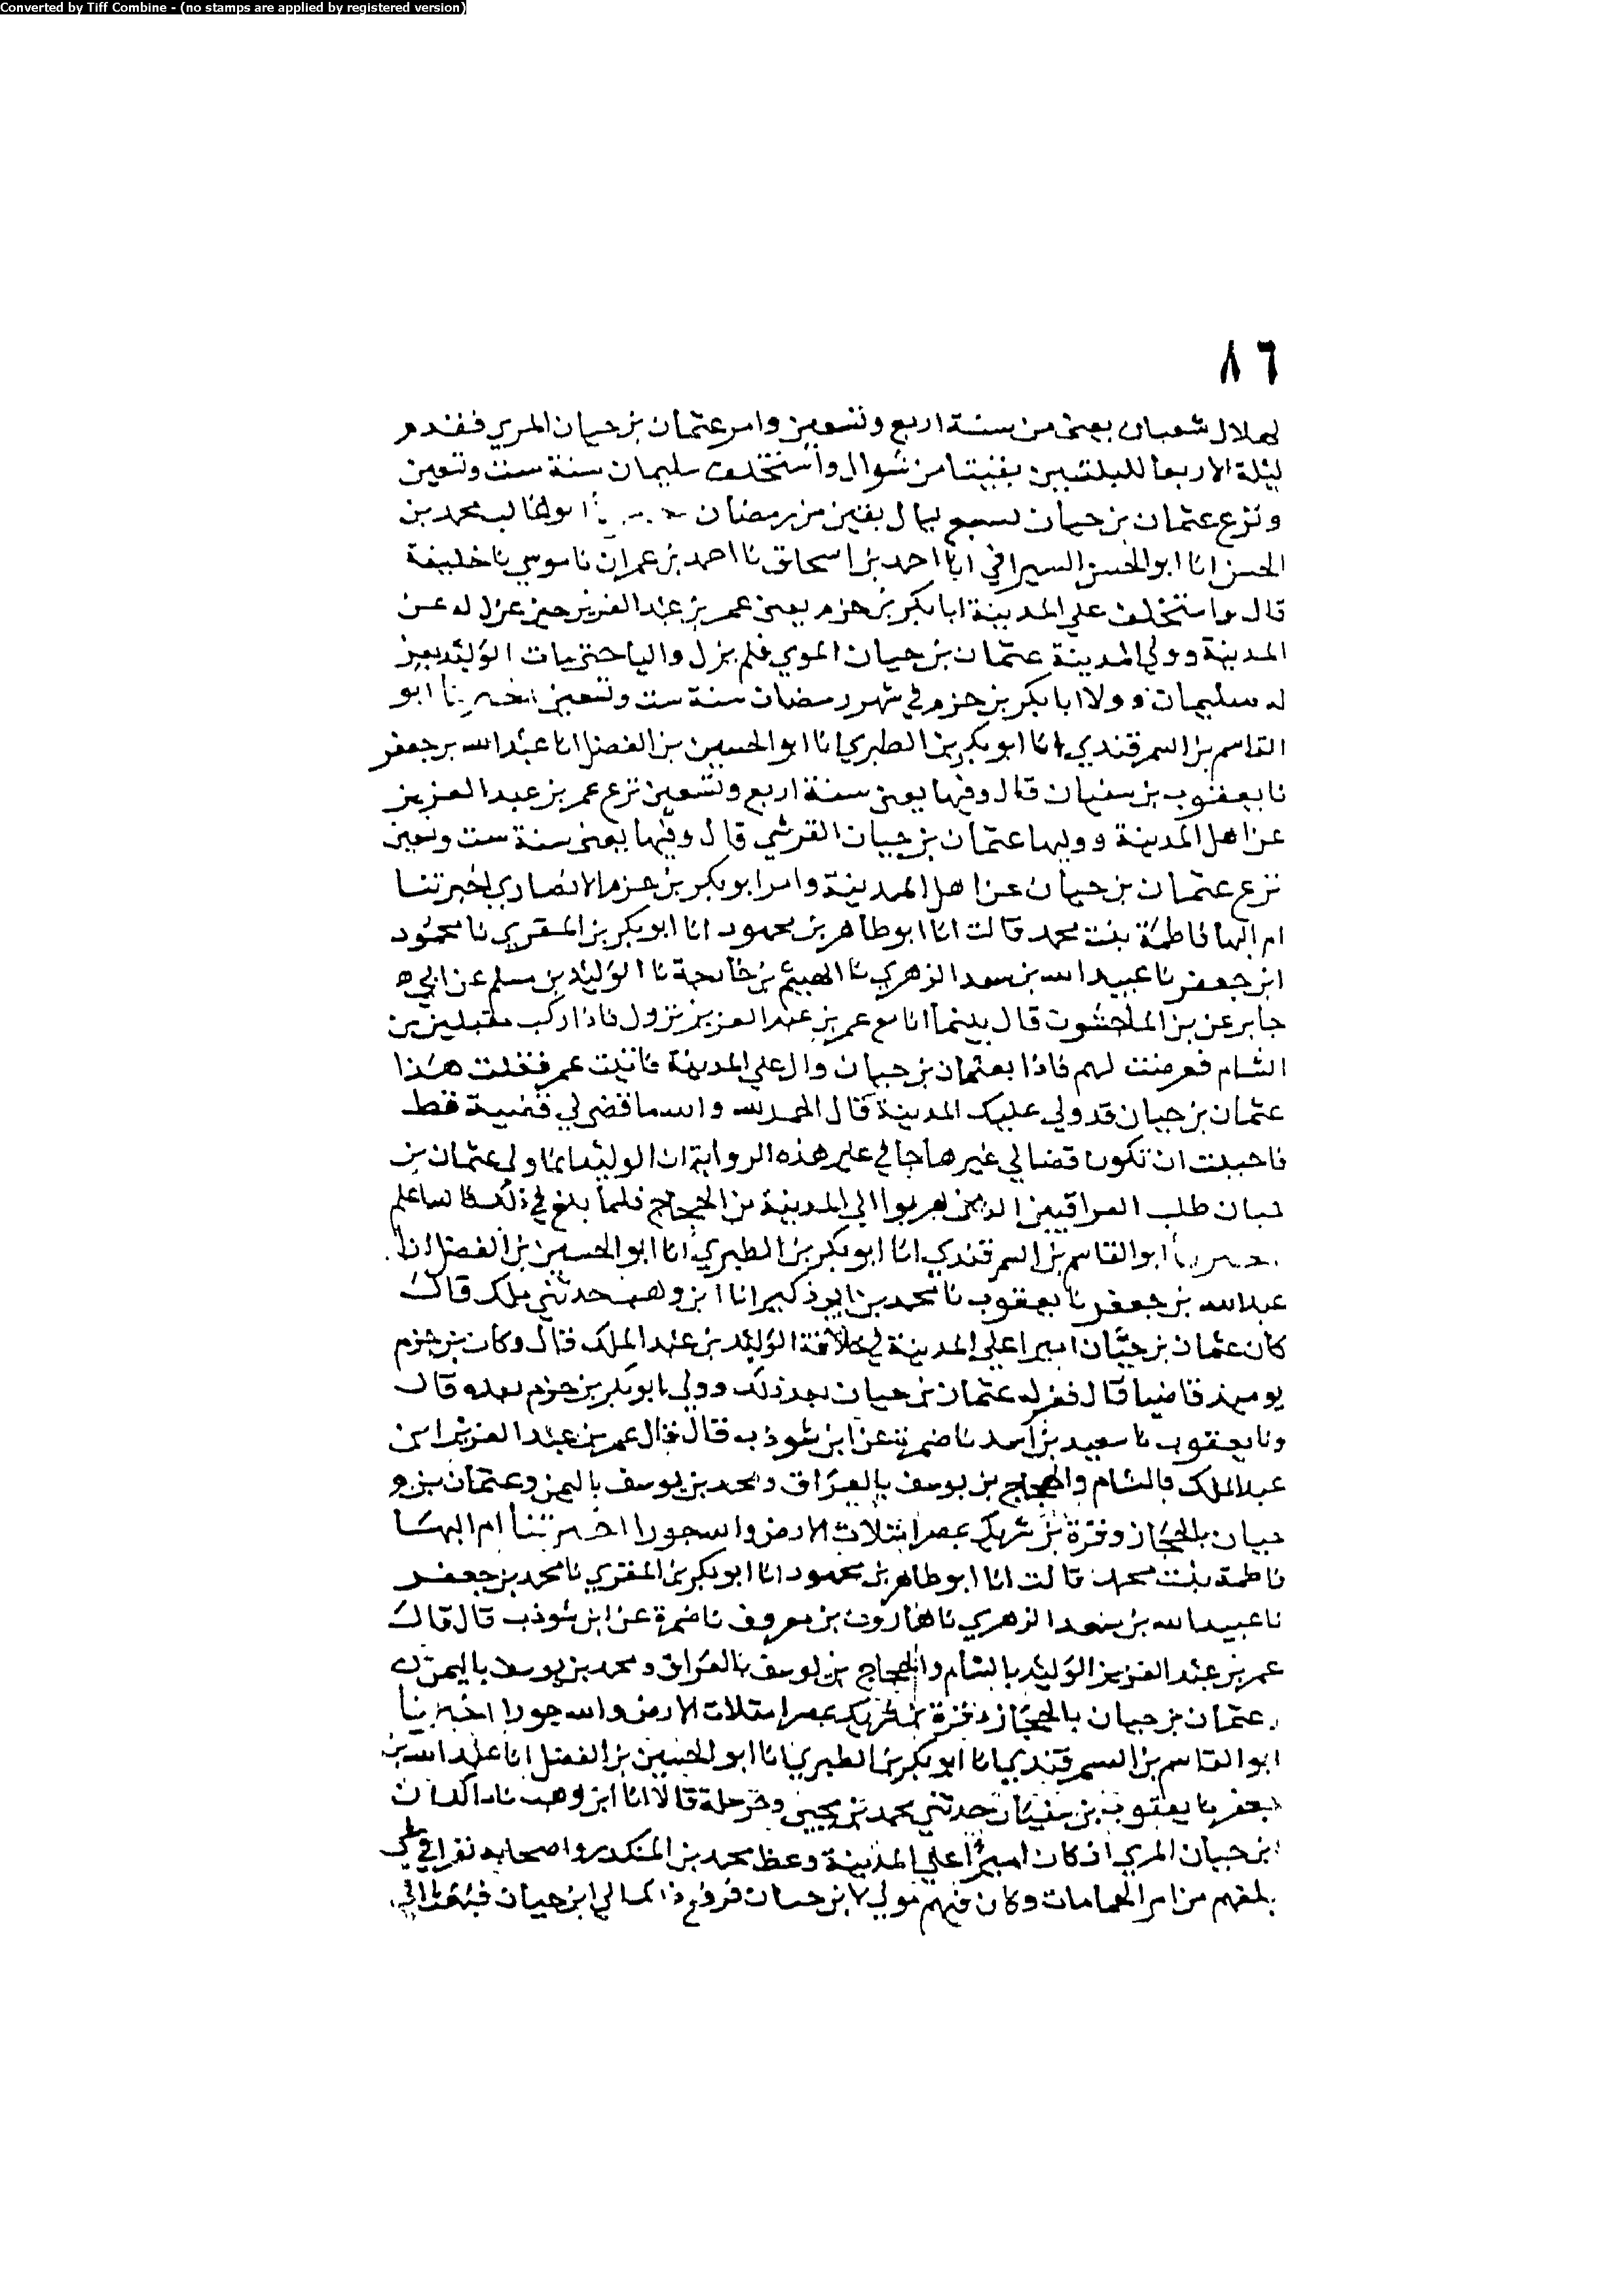 Converted by Tiff Combine - (no stamps are applied by registered version)
٨٦
لهلال شعبان يعني من سنة اربع وتسعين وامر عثمان بن حيان المري فقدم
ليلة الاربعا لليلتين بقيتا من شوال واستخلف سليمان سنة ست وتسعين
ونزع عثمان بن حيان لسبع ليال بقين من رمضان ابو غالب محمد بن
الحسن انا ابو الحسن السيرافي انا احمد بن اسحاق نا احمد بن عمران نا موسي نا خليفة
قال واستخلف علي المدينة ابا بكر بن حزم يعني عمر بن عبد العزيز حين عزله عن
المدينة وولي المدينة عثمان بن حيان الموي فلم يزل واليا حتي مات الوليد
له سليمان وولا ابا بكر بن حزم في شهر رمضان سنة ست وتسعين اخبرنا ابو
القاسم بن السمرقندي انا ابو بكر بن الطبري انا ابو الحسين بن الفضل انا عبد الله بن جعفر
نا يعقوب بن سفيان قال وفيها يعني سنة اربع وتسعين نزع عمر بن عبد العزيز
عن اهل المدينة ووليها عثمان بن حيان القرشي قال وفيها يعني سنة ست وتسعين
نزع عثمان بن حيان عن اهل المدينة وامر ابو بكر بن حزم الانصاري اخبرتنا
ام البها فاطمة بنت محمد قالت انا ابو طاهر بن محمود انا ابو بكر بن المقري نا محمود
ابن جعفر نا عبيد الله بن سعد الزهري نا الهيثم بن خارجة نا الوليد بن مسلم عن ابي ه
جابر عن بن الملحشون قال بينما انا مع عمر بن عبد العزيز نزول فاذا ركب مقبلين من
الشام فعرضت لهم فاذا بعثمان بن حيان وال علي المدينة فاتيت عمر فقلت هذا
عثمان بن حيان قد ولي عليك المدينة قال الحمد لله والله ما قضي لي قضية قط
فاحببت ان تكون قضا لي غيرها جا في علي هذه الرواية ان الوليد انما ولي عثمان بن
حيان طلب العراقيين الذين هربوا الي المدينة من الحجاج فلما بلغ في ذلك فالله اعلم
ابو القاسم بن السمرقندي انا ابو بكر بن الطبري انا ابو الحسين بن الفضل انا
عبد الله بن جعفر نا يعقوب نا محمد بن ابي زكير انا ابن وهب حدثني ملك قال
كان عثمان بن حيان اميرا علي المدينة في خلافة الوليد بن عبد الملك قال وكان بن حزم
يوميذ قاضيا قال فعزله عثمان بن حيان بعد ذلك وولي ابو بكر بن حزم بعده قال
ونا يعقوب نا سعيد بن اسد نا ضمرة عن ابن شوذب قال قال عمر بن عبد العزيز ابن
عبد الملك بالشام والحجاج بن يوسف بالعراق ومحمد بن يوسف باليمن وعثمان بن و
حيان بالحجاز وقرة بن شريك بمصر امتلات الارض والله جورا اخبرتنا ام البها
فاطمة بنت محمد قالت انا ابو طاهر بن محمود انا ابو بكر بن المقري نا محمد بن جعفر
نا عبيد الله بن سعد الزهري نا هارون بن معروف نا ضمرة عن ابن شوذب قال قال
عمر بن عبد العزيز الوليد بالشام والحجاج بن يوسف بالعراق ومحمد بن يوسف باليمن
عثمان بن حيان بالحجاز وقرة بن شريك بمصر امتلات الارض والله جورا اخبرنا
ابو القاسم بن السمرقندي انا ابو بكر بن الطبري انا ابو الحسين بن الفضل انا عبد الله بن
جعفر نا يعقوب بن سفيان حدثني محمد بن يحيي وحرملة قالا انا ابن وهب نا
ابن حيان المري اذ كان اميرا علي المدينة وعظ محمد بن المنكدر واصحابه نفرا في
بلغهم من امر الحمامات وكان فيهم مولي لابن حيان فرفع ذلك الي ابن حيان فبعث الي